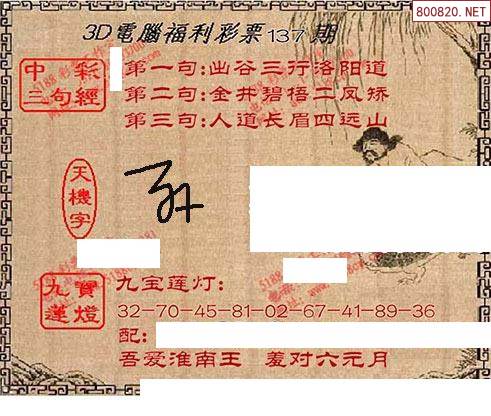 800820.NET
3D電腦福利彩票137期
中彩三句經
第一句:出谷三行洛阳道
第二句:金井碧梧二凤矫
第三句:人道长眉四远山
天機字
九寶蓮燈
九宝莲灯:
32-70-45-81-02-67-41-89-36
配:
吾爱淮南王 羞对六元月